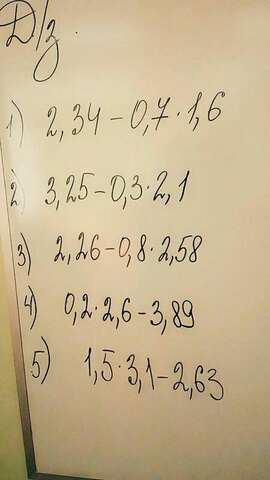 Д/з.
1) 2,34 - 0,7 · 1,6
2) 3,25 - 0,3 · 2,1
3) 2,26 - 0,8 · 2,58
4) 0,2 · 2,6 - 3,89
5) 1,5 · 3,1 - 2,63